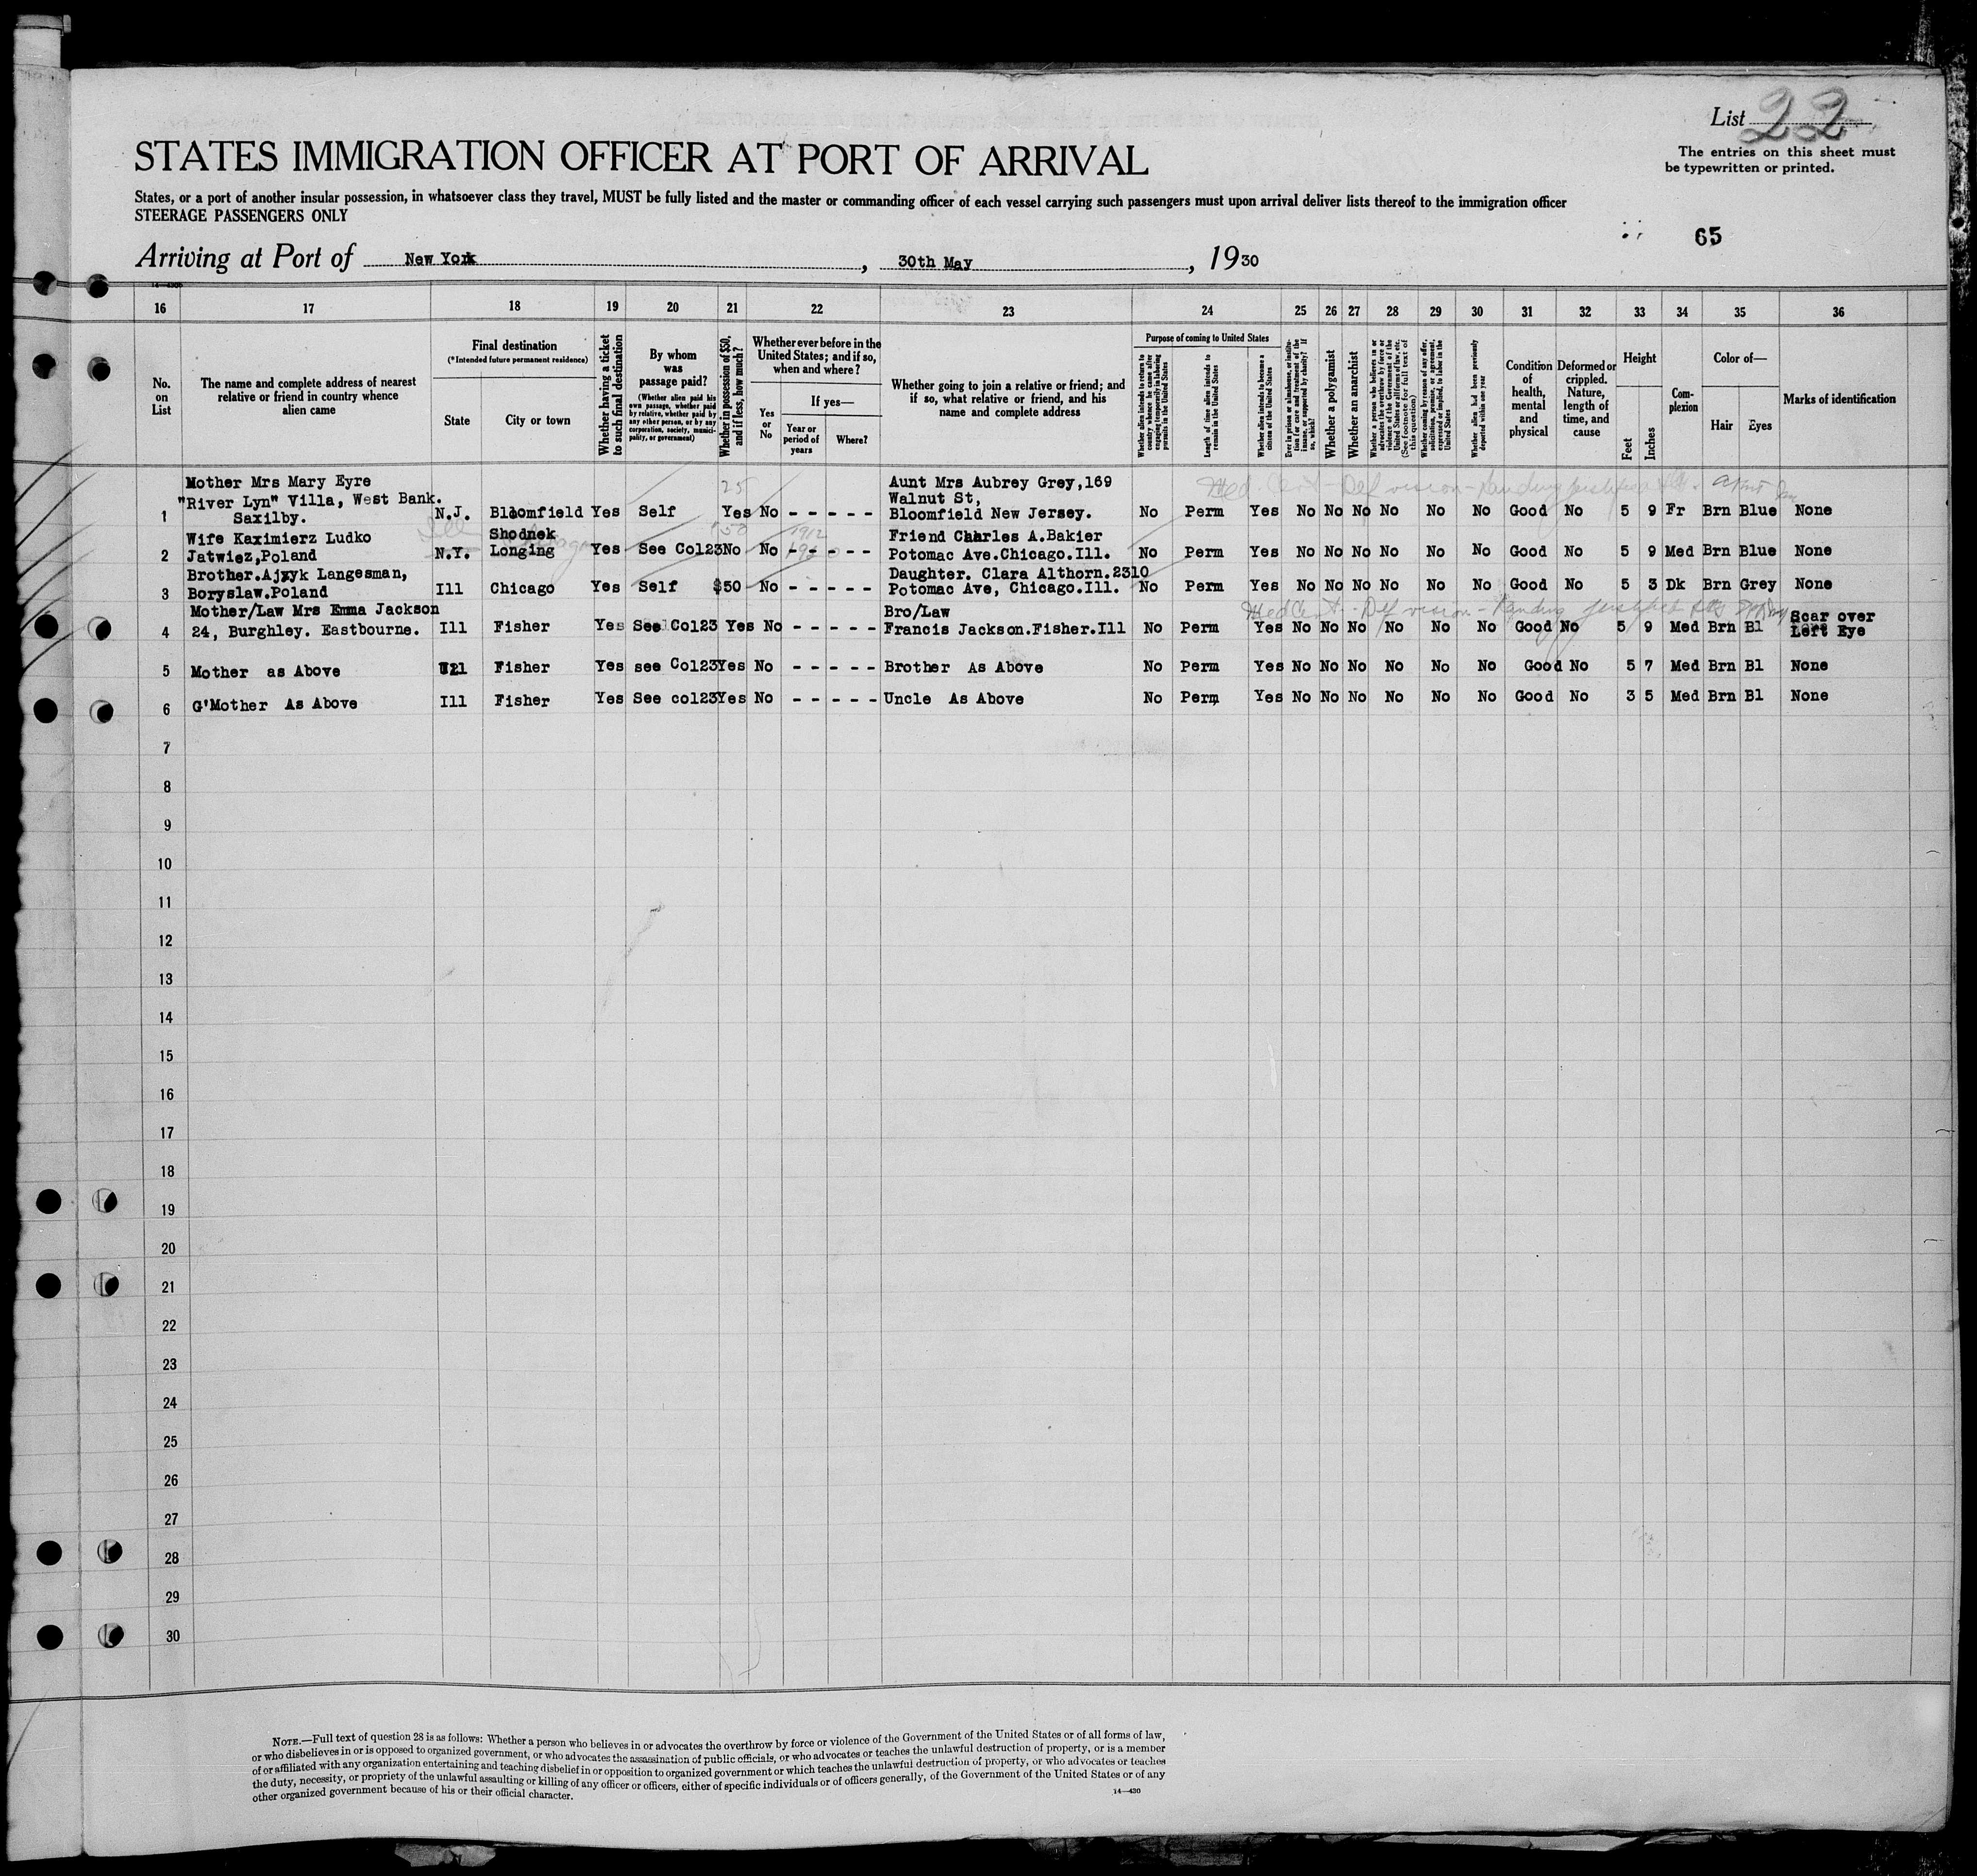 List 22
The entries on this sheet must
be typewritten or printed.
STATES IMMIGRATION OFFICER AT PORT OF ARRIVAL
States, or a port of another insular possession, in whatsoever class they travel, MUST be fully listed and the master or commanding officer of each vessel carrying such passengers must upon arrival deliver lists thereof to the immigration officer
STEERAGE PASSENGERS ONLY
65
Arriving at Port of New York, 30th May, 1930
16 17 18 19 20 21 22 23 24 25 26 27 28 29 30 31 32 33 34 35 36
No.
on
List
The name and complete address of nearest
relative or friend in country whence
alien came
Final destination
(*Intended future permanent residence)
State
City or town
Whether having a ticket
to such final destination
By whom
was
passage paid?
(Whether alien paid his
own passage, whether paid
by relative, whether paid by
any other person, or by any
corporation, society, munici-
pality, or government)
Whether in possession of $50,
and if less, how much?
Whether ever before in the
United States; and if so,
when and where?
Yes
or
No
If yes—
Year or
period of
years
Where?
Whether going to join a relative or friend; and
if so, what relative or friend, and his
name and complete address
Purpose of coming to United States
Whether alien intends to return to
country whence he came after
engaging temporarily in laboring
pursuits in the United States
Length of time alien intends to
remain in the United States
Whether alien intends to become a
citizen of the United States
Ever in prison or almshouse, or institu-
tion for care and treatment of the
insane, or supported by charity? If
so, which?
Whether a polygamist
Whether an anarchist
Whether a person who believes in or
advocates the overthrow by force or
violence of the Government of the
United States or all forms of law, etc.
(See footnote for full text of
this question)
Whether coming by reason of any offer,
solicitation, promise, or agreement,
expressed or implied, to labor in the
United States
Whether alien had been previously
deported within one year
Condition
of
health,
mental
and
physical
Deformed or
crippled.
Nature,
length of
time, and
cause
Height
Feet
Inches
Com-
plexion
Color of—
Hair
Eyes
Marks of identification
Mother Mrs Mary Eyre 25 Aunt Mrs Aubrey Grey,169
"River Lyn" Villa, West Bank. Walnut St,
1 Saxilby. N.J. Bloomfield Yes Self Yes No - - - - - Bloomfield New Jersey. No Perm Yes No No No No No No Good No 5 9 Fr Brn Blue None
Wife Kaximierz Ludko Shodnek 50 1912 Friend Charles A.Bakier
2 Jatwiez,Poland N.Y. Longing Yes See Col23 No No - - - - - Potomac Ave.Chicago.Ill. No Perm Yes No No No No No No Good No 5 9 Med Brn Blue None
Brother.Ajzyk Langesman, Daughter. Clara Althorn.2310
3 Boryslaw.Poland Ill Chicago Yes Self $50 No - - - - - Potomac Ave, Chicago.Ill. No Perm Yes No No No No No No Good No 5 3 Dk Brn Grey None
Mother/Law Mrs Emma Jackson Bro/Law Scar over
4 24, Burghley. Eastbourne. Ill Fisher Yes See Col23 Yes No - - - - - Francis Jackson.Fisher.Ill No Perm Yes No No No No No No Good No 5 9 Med Brn Bl Left Eye
5 Mother as Above Ill Fisher Yes see Col23 Yes No - - - - - Brother As Above No Perm Yes No No No No No No Good No 5 7 Med Brn Bl None
6 G'Mother As Above Ill Fisher Yes See col23 Yes No - - - - - Uncle As Above No Perm Yes No No No No No No Good No 3 5 Med Brn Bl None
7
8
9
10
11
12
13
14
15
16
17
18
19
20
21
22
23
24
25
26
27
28
29
30
NOTE.—Full text of question 28 is as follows: Whether a person who believes in or advocates the overthrow by force or violence of the Government of the United States or of all forms of law,
or who disbelieves in or is opposed to organized government, or who advocates the assassination of public officials, or who advocates or teaches the unlawful destruction of property, or is a member
of or affiliated with any organization entertaining and teaching disbelief in or opposition to organized government or which teaches the unlawful destruction of property, or who advocates or teaches
the duty, necessity, or propriety of the unlawful assaulting or killing of any officer or officers, either of specific individuals or of officers generally, of the Government of the United States or of any
other organized government because of his or their official character.
14—430